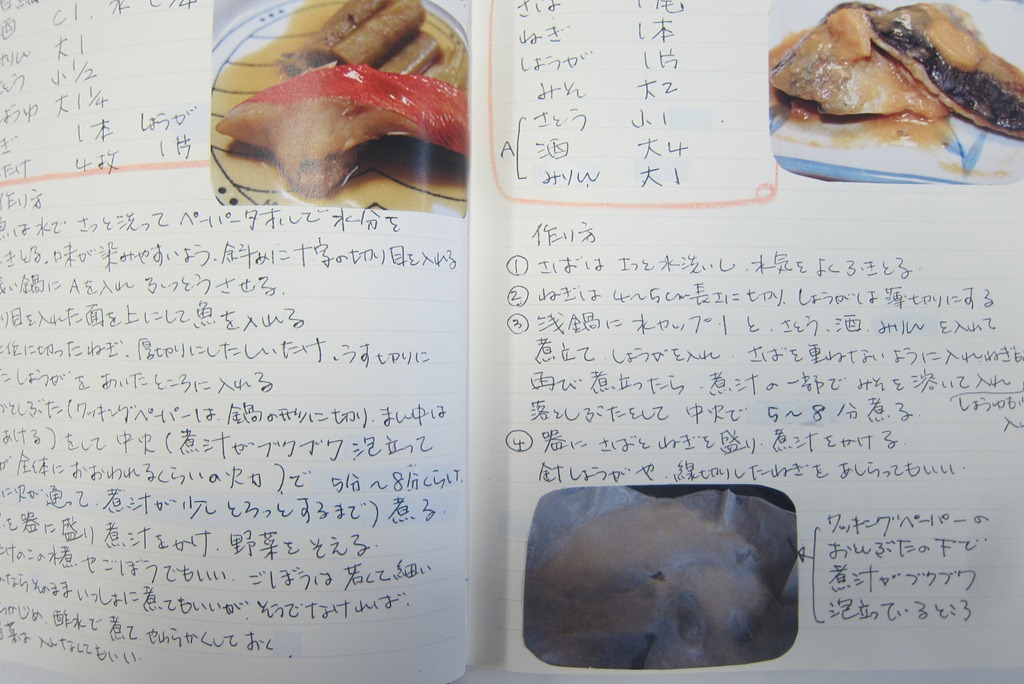 酒 C1. 水 C 1/4
みりん 大1
さとう 小1/2
しょうゆ 大1 1/4
ぎ 1本 しょうが
たけ 4枚 1片
作り方
魚は水で さっと洗って ペーパータオルで 水分を
きとる. 味が染みやすいよう. 斜めに 十字の切り目を入れる
い鍋に Aを入れ ふっとうさせる.
り目を入れた面を上にして 魚を入れる
位に切ったねぎ. 厚切りにしたしいたけ. うす切りに
たしょうがを あいたところに 入れる
おとしぶた(クッキングペーパーは. 鍋の形に切り. まん中は
あける)をして 中火(煮汁がブクブク 泡立って
が全体に おおわれるくらいの火力)で 5分〜8分くらい
に火が通って. 煮汁が少し とろっとするまで)煮る.
を器に盛り 煮汁をかけ. 野菜をそえる.
けのこの水煮やごぼうでもいい. ごぼうは若くて細い
のならそのまま いっしょに煮てもいいが. そうでなければ.
らかじめ. 酢水で煮て やわらかくしておく
菜は入れなくてもいい.
さば 1尾
ねぎ 1本
しょうが 1片
みそ 大2
さとう 小1
A 酒 大4
みりん 大1
作り方
① さばは さっと水洗いし. 水気をよくふきとる.
② ねぎは 4〜5cm長さに切り. しょうがは薄切りにする
③ 浅鍋に 水カップ1と. さとう. 酒. みりんを入れて
煮立て. しょうがを入れ. さばを重ねないように入れねぎも
再び煮立ったら. 煮汁の一部で みそを溶いて入れ
落としぶたをして 中火で 5〜8分煮る.
しょうゆも
入
④ 器に さばとねぎを盛り. 煮汁をかける.
針しょうがや. 線切りしたねぎをあしらってもいい.
クッキングペーパーの
おとしぶたの下で
煮汁がブクブク
泡立っているところ